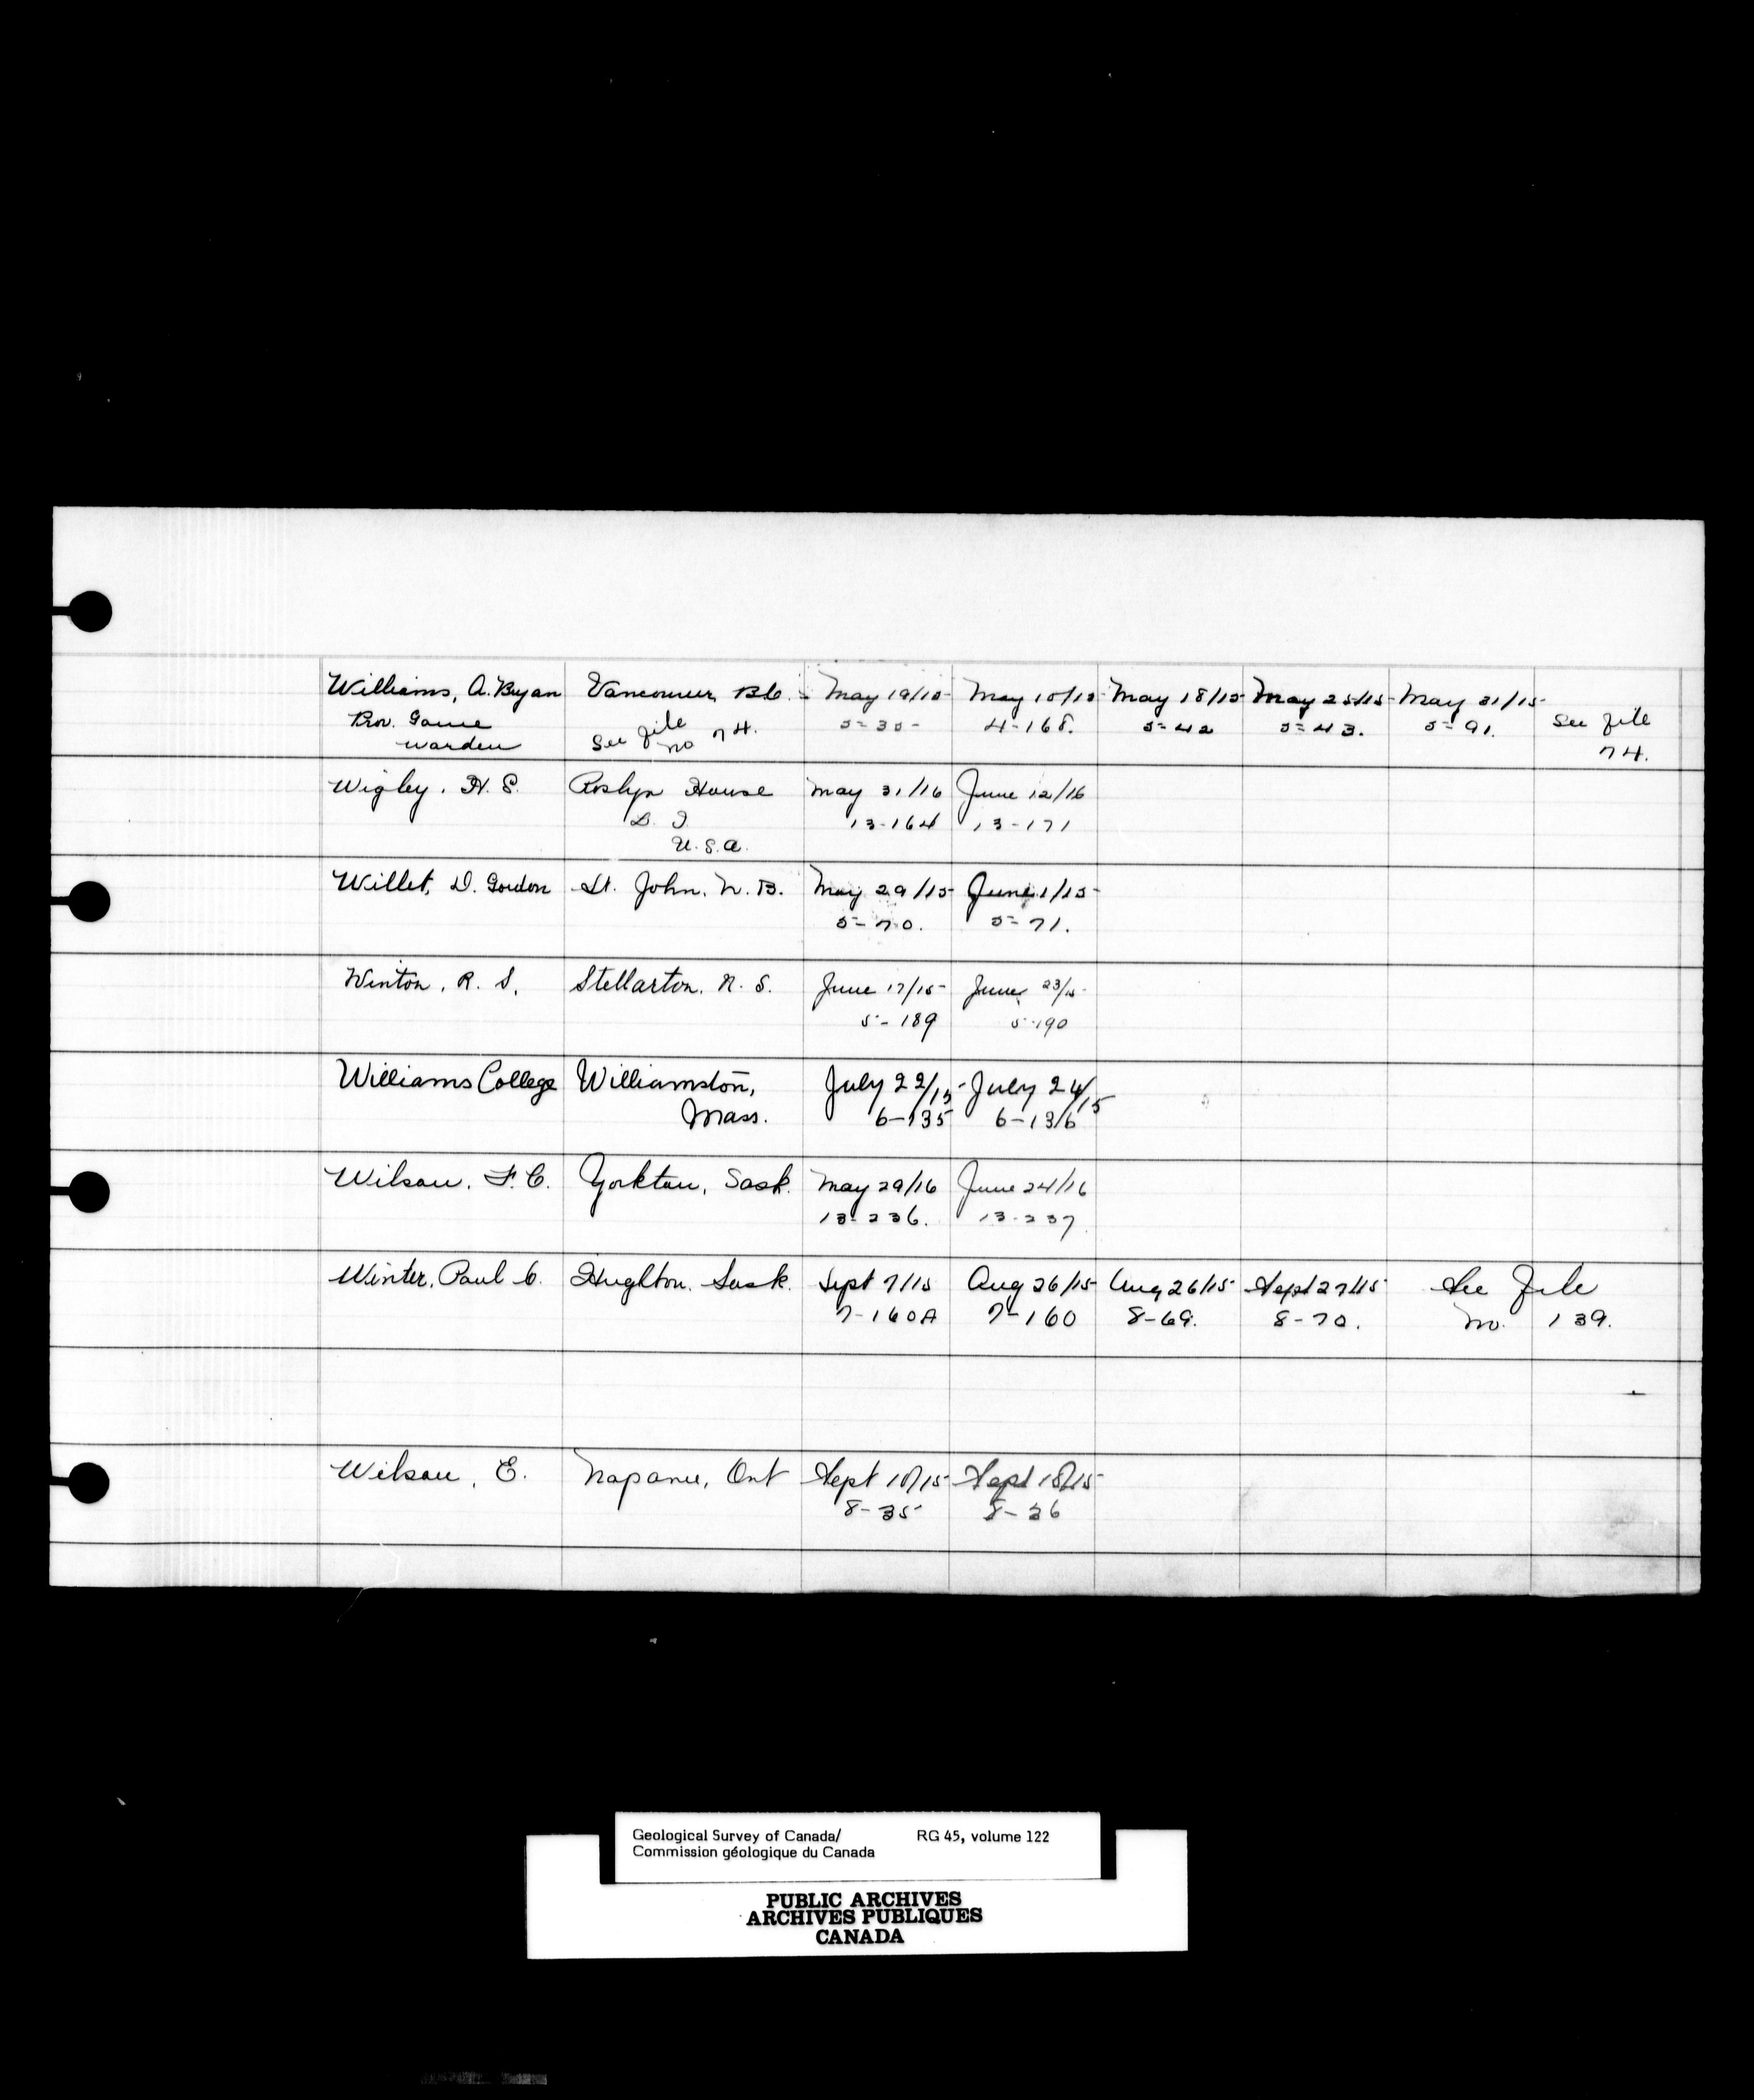 Williams, A. Bryan Vancouver, B.C. May 19/15 May 10/15 May 18/15 May 25/15 May 31/15
Prov. Game See file 5-35 4-168. 5-42 5-43. 5-91. See file
Warden no 74. 74.
Wigley, H. S. Roslyn House May 31/16 June 12/16
L. I. 13-164 13-171
U.S.A.
Willet, D. Gordon St. John, N. B. May 29/15 June 1/15
5-70. 5-71.
Winton, R. S. Stellarton, N. S. June 17/15 June 23/15
5-189 5-190
Williams College Williamston, July 22/15 July 24/15
Mass. 6-135 6-136
Wilson, F. C. Yorkton, Sask. May 29/16 June 24/16
13-236. 13-237
Winter, Paul C. Hughton, Sask. Sept 7/15 Aug 26/15 Aug 26/15 Sept 27/15 See File
7-160A 7-160 8-69. 8-70. No. 139.
Wilson, E. Napanee, Ont Sept 10/15 Sept 18/15
8-35 8-36
Geological Survey of Canada/ RG 45, volume 122
Commission géologique du Canada
PUBLIC ARCHIVES
ARCHIVES PUBLIQUES
CANADA